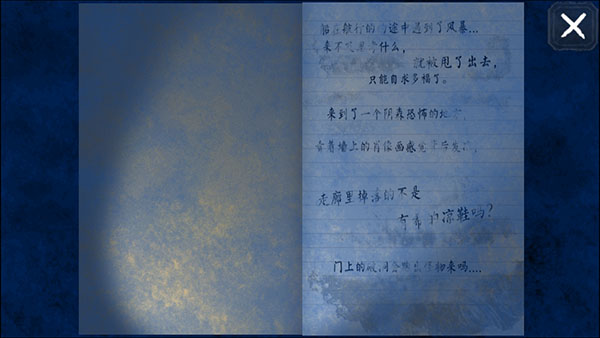 船在航行的 途中遇到了风暴...
来不 什么，
就被甩了出去，
只能自求多福了。
来到了一个阴森恐怖的地方，
看着墙上的肖像画
走廊里掉落的不是
凉鞋吗？
门上的 洞会 出怪物来吗....